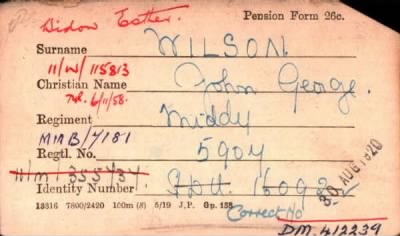 Widow Esther. Pension Form 26c.
Surname WILSON.
11/W/115813
Christian Name John George.
6/11/58.
Regiment Middx
M1nB/7181
Regtl. No. 5904
355434
Identity Number 16092
30 AUG 1920
13316 7800/2420 100m (8) 5/19 J.P. Gp. 138
Correct No
DM. 412239